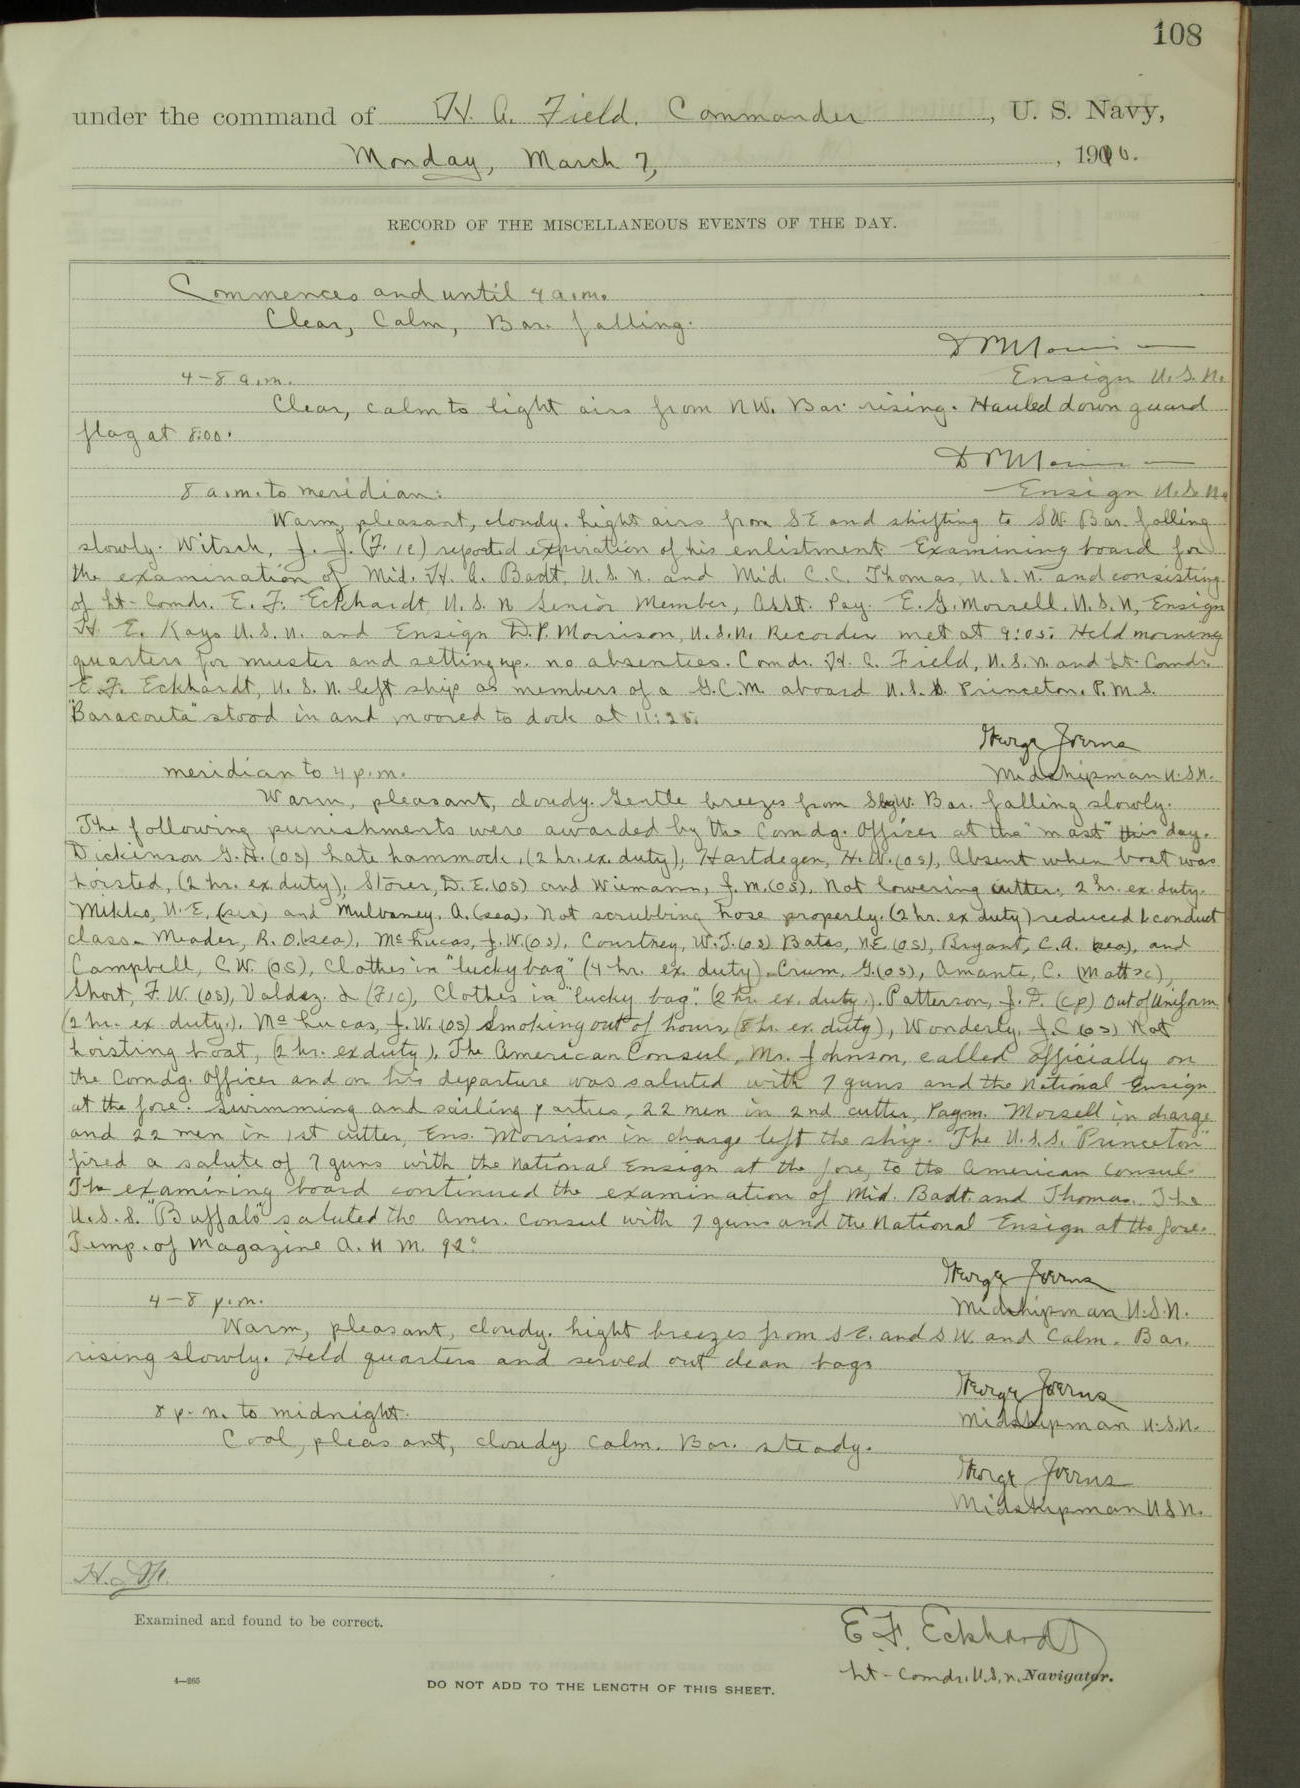 108
under the command of H. A. Field, Commander, U. S. Navy,
Monday, March 7, 1910.
RECORD OF THE MISCELLANEOUS EVENTS OF THE DAY.
Commences and until 4 a.m.
Clear, Calm, Bar. falling.
Ensign U.S.N.
4-8 a.m.
Clear, calm to light airs from NW. Bar. rising. Hauled down guard
flag at 8:00.
Ensign U.S.N.
8 a.m. to meridian:
Warm, pleasant, cloudy. Light airs from SE and shifting to SW. Bar. falling
slowly. Witsch, J. J. (F. 1c) reported expiration of his enlistment. Examining board for
the examination of Mid. H. A. Badt, U.S.N. and Mid. C.C. Thomas, U.S.N. and consisting
of Lt-Comdr. E. F. Eckhardt, U.S.N. Senior Member, Asst. Pay. E. G. Morsell, U.S.N, Ensign
H. E. Kays U.S.N. and Ensign D.P. Morrison, U.S.N. Recorder met at 9:05. Held morning
quarters for muster and setting up. no absentees. Comdr. H. A. Field, U.S.N. and Lt-Comdr.
E. F. Eckhardt, U.S.N. left ship as members of a G.C.M. aboard U.S.S. Princeton. P.M.S.
"Baracouta" stood in and moored to dock at 11:25.
George Joerns
Midshipman U.S.N.
meridian to 4 p.m.
Warm, pleasant, cloudy. Gentle breezes from SbyW. Bar. falling slowly.
The following punishments were awarded by the Comdg. Officer at the "mast" this day.
Dickinson G.H. (OS) Late hammock, (2 hr. ex. duty), Hartdegen, H.W. (OS), Absent when boat was
hoisted, (2 hr. ex duty); Storer, D.E. (OS) and Wiemann, J.M. (OS), Not lowering cutter, 2 hr. ex. duty.
Mikko, U.E. (sea) and Mulvaney, A. (sea), Not scrubbing hose properly. (2 hr. ex duty) reduced 1 conduct
class. Meader, R.O. (sea), McLucas, J.W. (OS), Courtney, W.J. (OS) Bates, N.E. (OS), Bryant, C.A. (sea), and
Campbell, C.W. (OS), Clothes in "lucky bag" (4 hr. ex. duty). Crum, G. (OS), Amante, C. (Matt 2c),
Short, F.W. (OS), Valdez. L (F1c), Clothes in "lucky bag". (2 hr. ex. duty.). Patterson, J.D. (cp) Out of Uniform
(2 hr. ex duty.). McLucas, J.W. (OS) Smoking out of hours, (8 hr. ex. duty), Wonderly, J.C (OS) Not
hoisting boat, (2 hr. ex duty). The American Consul, Mr. Johnson, called officially on
the Comdg. Officer and on his departure was saluted with 7 guns and the National Ensign
at the fore. Swimming and sailing parties, 22 men in 2nd cutter, Paym. Morsell in charge
and 22 men in 1st cutter, Ens. Morrison in charge left the ship. The U.S.S. "Princeton"
fired a salute of 7 guns with the National Ensign at the fore, to the American Consul.
The examining board continued the examination of Mid. Badt and Thomas. The
U.S.S. "Buffalo" saluted the Amer. Consul with 7 guns and the National Ensign at the fore.
Temp. of Magazine A. H M. 92°
George Joerns
Midshipman U.S.N.
4-8 p.m.
Warm, pleasant, cloudy. Light breezes from SE. and SW. and Calm. Bar.
rising slowly. Held quarters and served out clean bags
George Joerns
Midshipman U.S.N.
8 p.m. to midnight.
Cool, pleasant, cloudy, calm. Bar. steady.
George Joerns
Midshipman U.S.N.
Examined and found to be correct.
E F. Eckhardt
Lt-Comdr. U.S.N. Navigator.
4—265
DO NOT ADD TO THE LENGTH OF THIS SHEET.